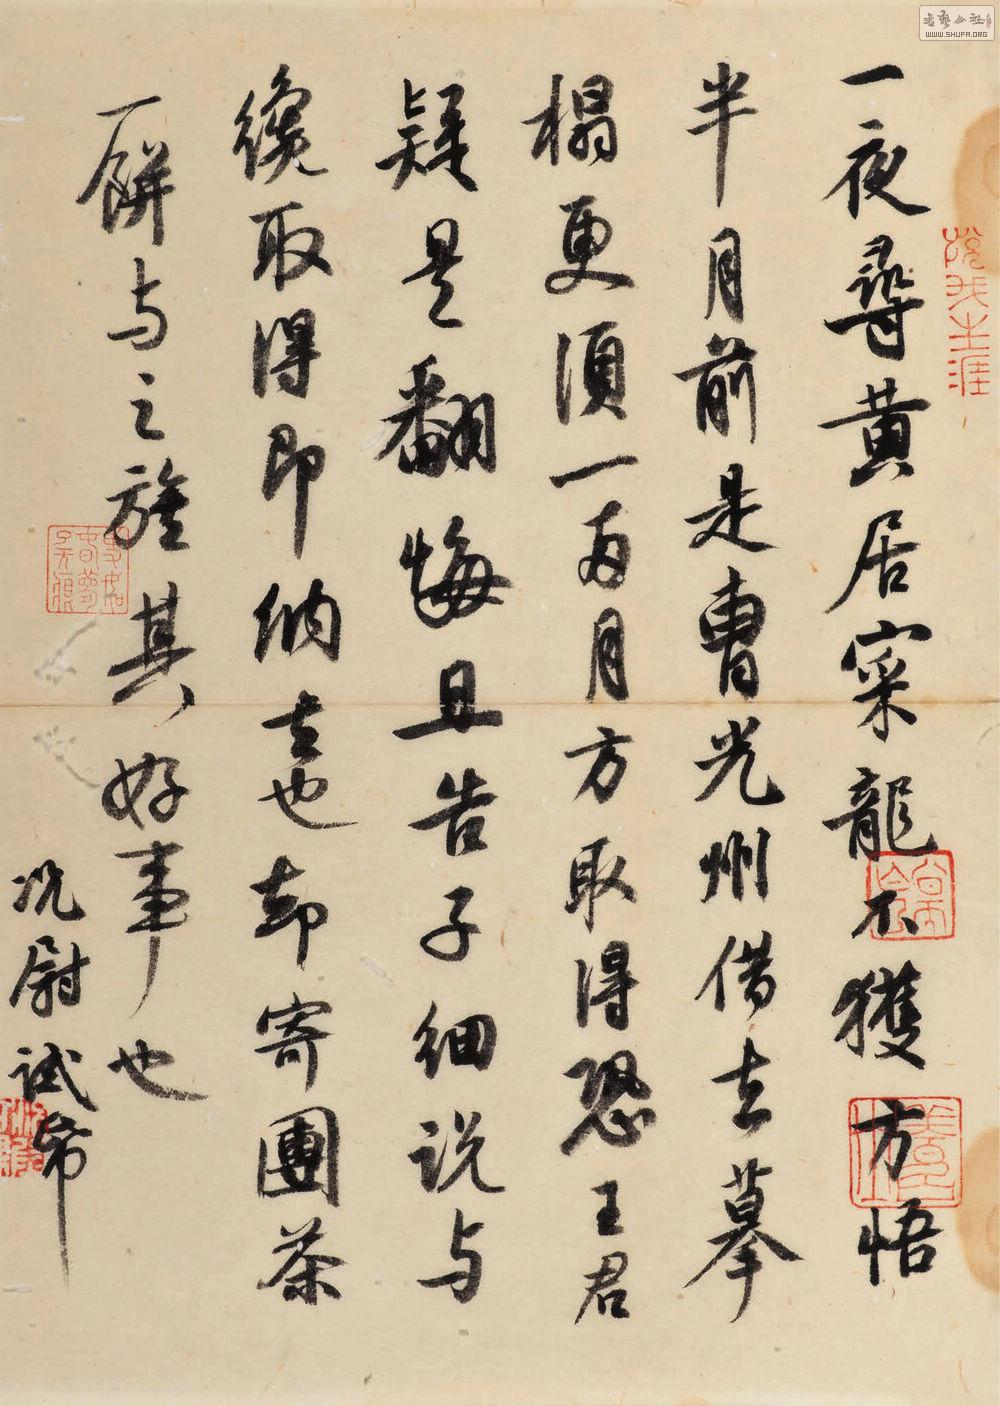 書藝公社
WWW.SHUFA.ORG
一夜尋黃居寀龍不獲方悟
半月前是曹光州借去摹
榻更須一兩月方取得恐王君
疑是翻悔且告子細说与
纔取得即納去也却寄團茶
一餅与之旌其好事也
况尉试帋